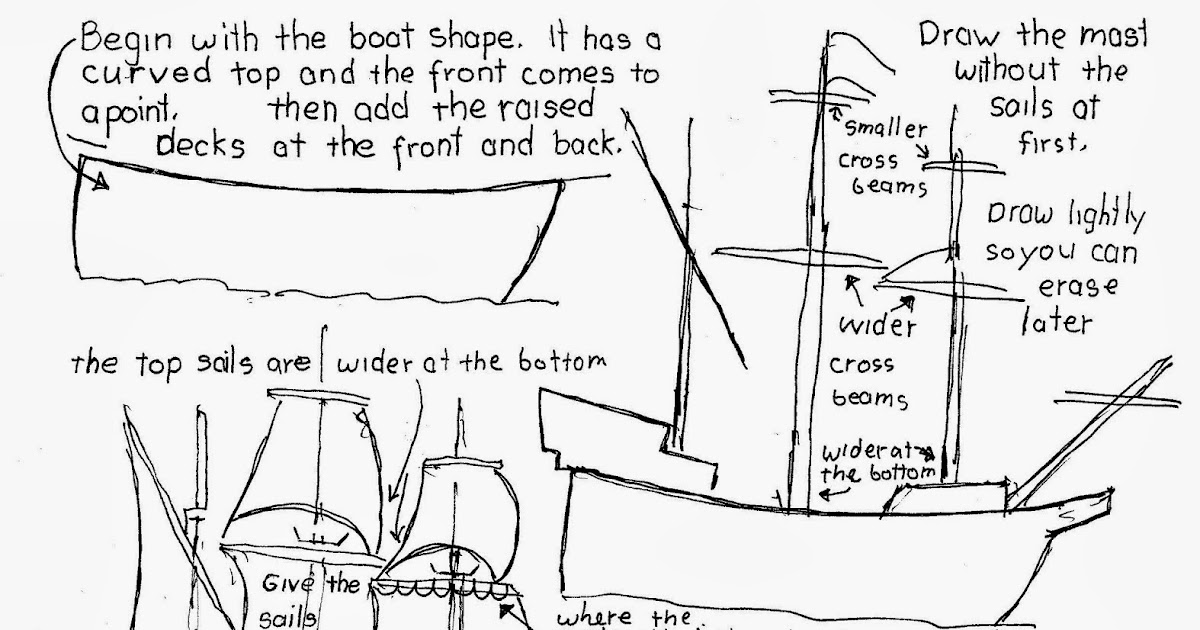 Begin with the boat shape. It has a
curved top and the front comes to
a point. then add the raised
decks at the front and back.
Draw the mast
without the
sails at
first.
smaller
cross
beams
Draw lightly
so you can
erase
later
wider
cross
beams
wider at
the bottom
the top sails are wider at the bottom
Give the
sails
where the